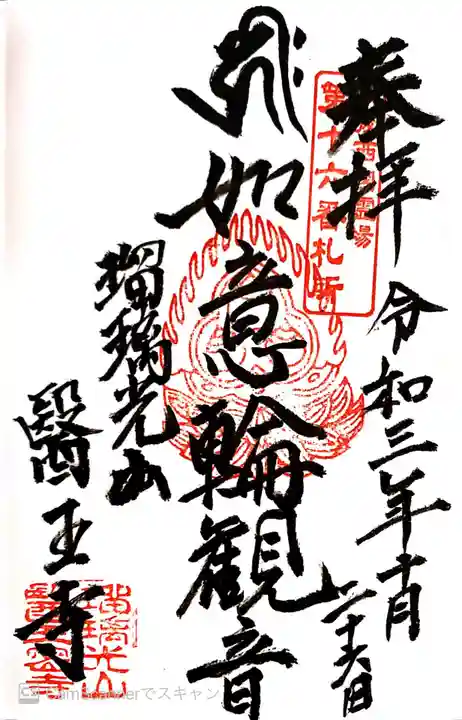 奉拝
令和三年十月
二十六日
第十六番札所
如意輪観音
瑠璃光山
醫王寺
CS CamScannerでスキャン